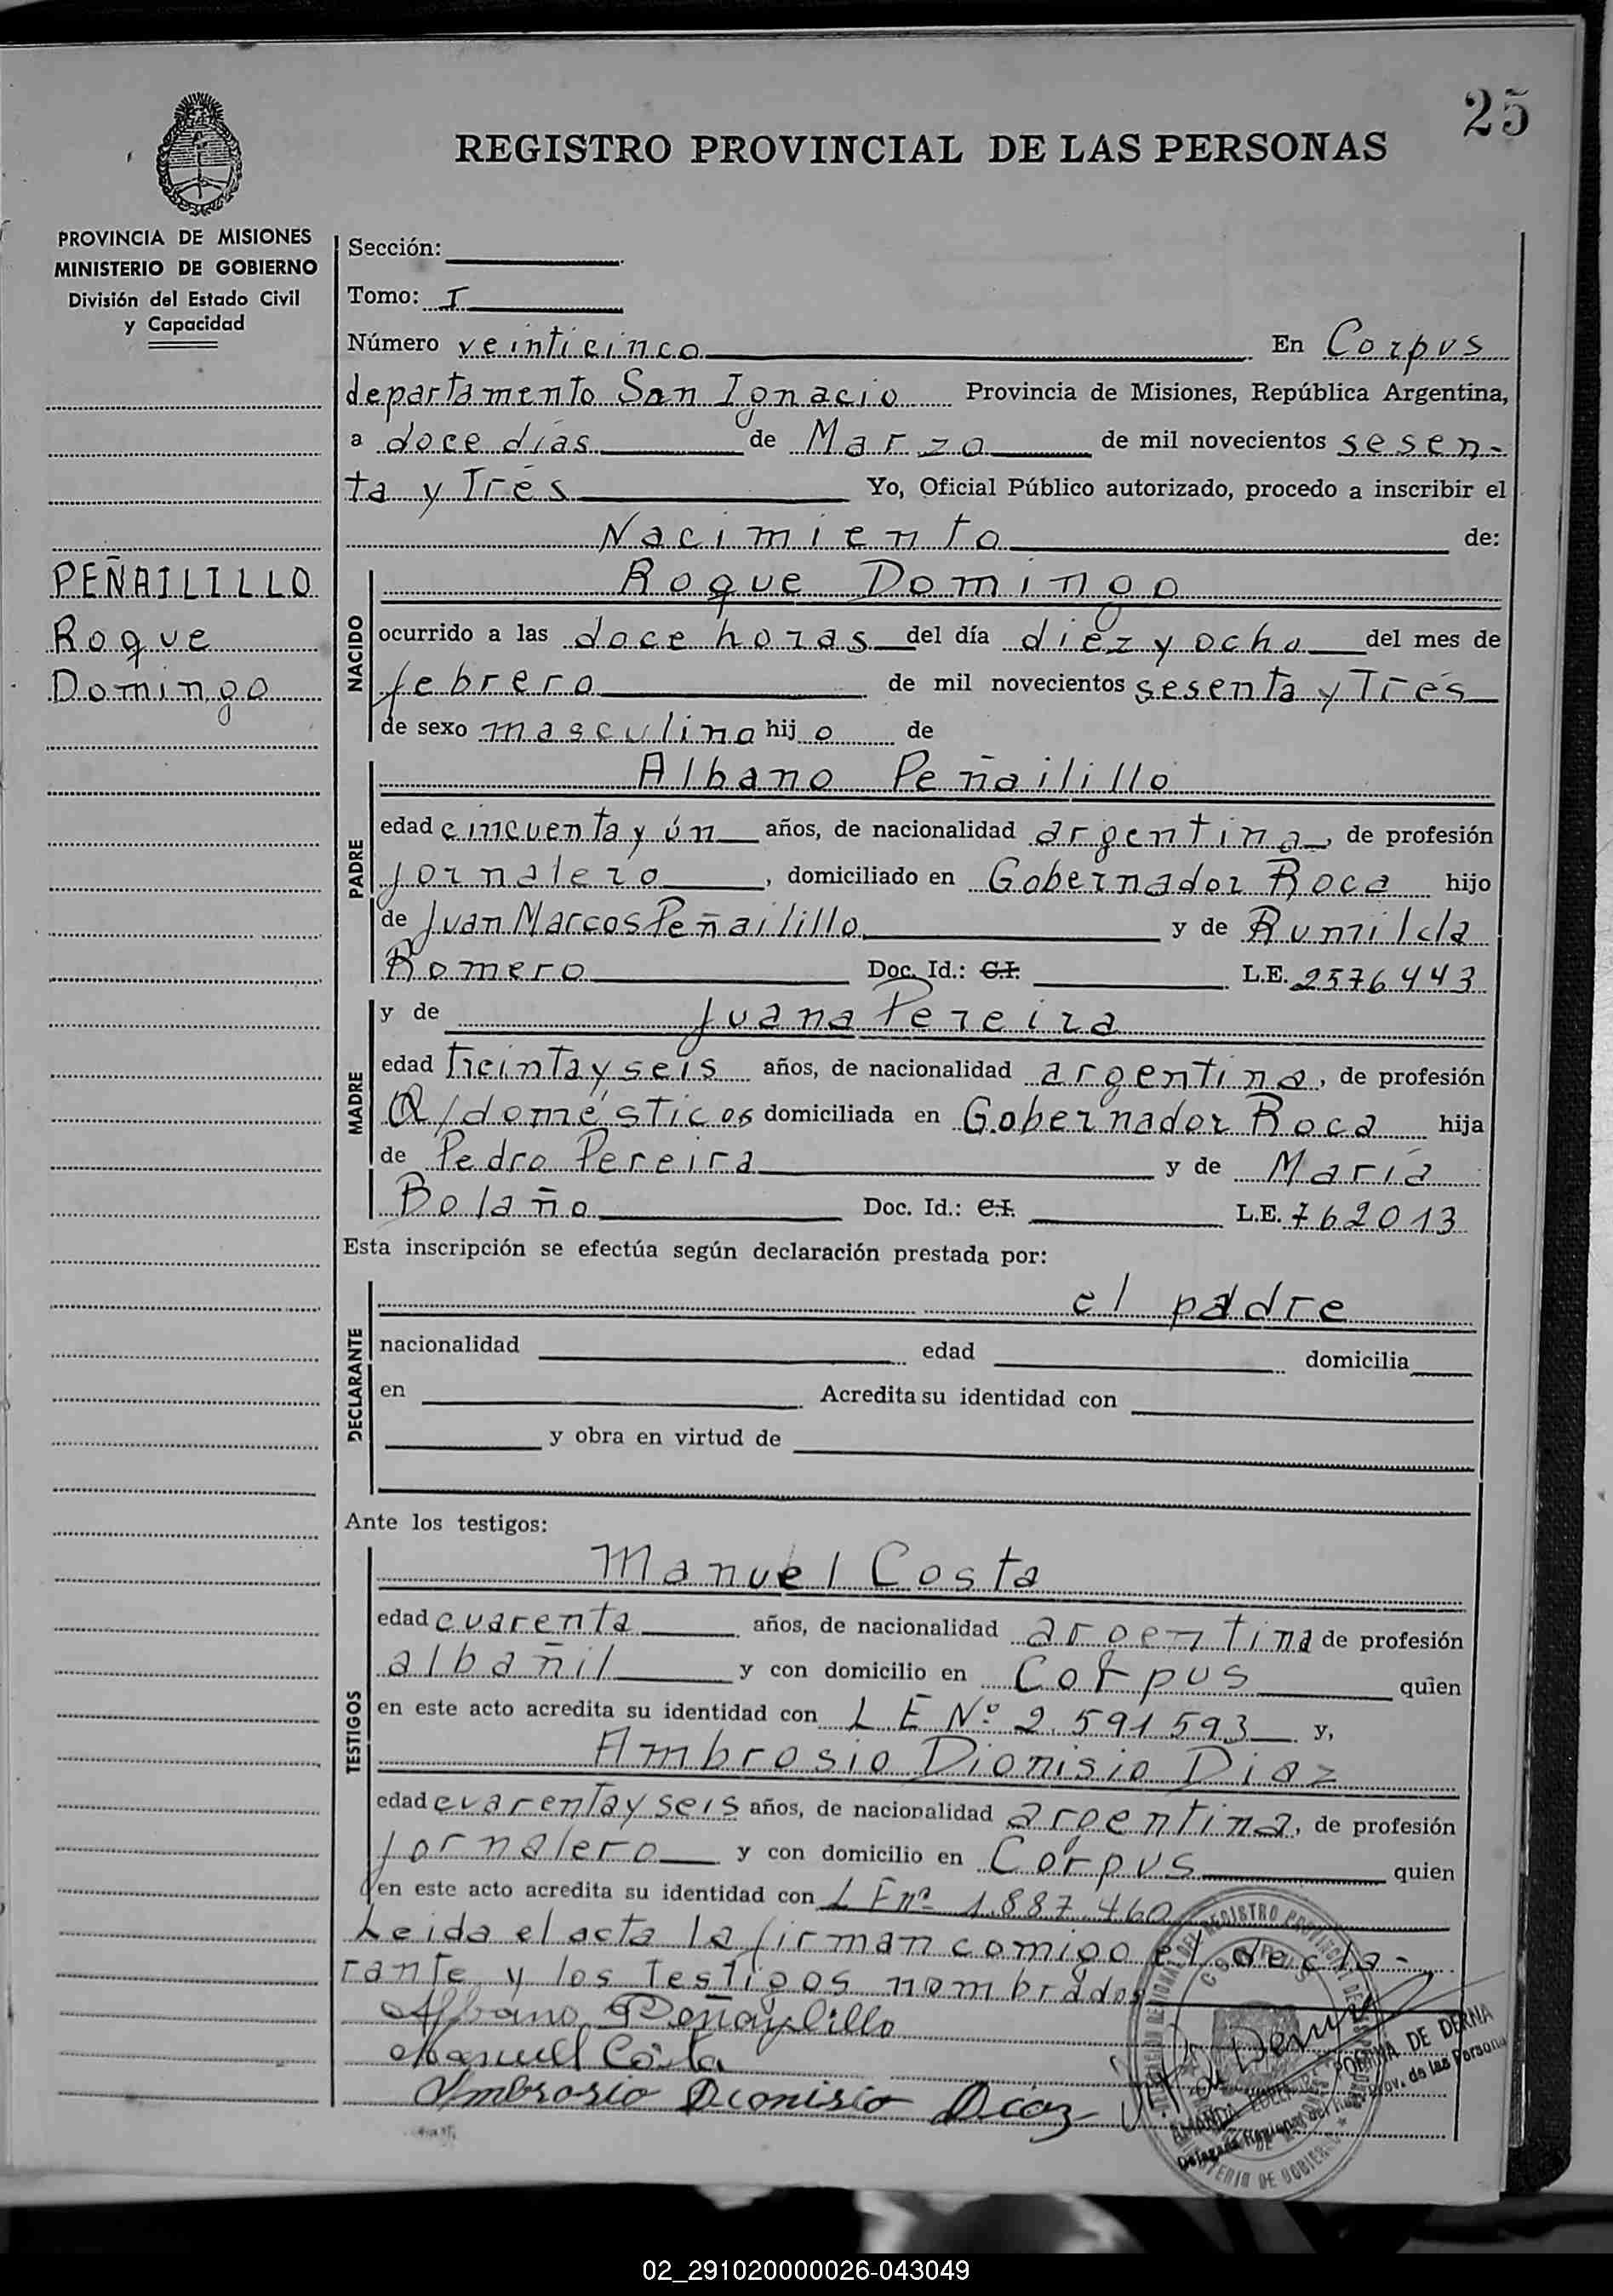 25
REGISTRO PROVINCIAL DE LAS PERSONAS
PROVINCIA DE MISIONES
MINISTERIO DE GOBIERNO
División del Estado Civil
y Capacidad
PEÑAILILLO
Roque
Domingo
Sección:
Tomo: I
Número veinticinco En Corpus
departamento San Ignacio Provincia de Misiones, República Argentina,
a doce días de Marzo de mil novecientos sesen-
ta y Tres Yo, Oficial Público autorizado, procedo a inscribir el
Nacimiento de:
NACIDO
Roque Domingo
ocurrido a las doce horas del día diez y ocho del mes de
febrero de mil novecientos sesenta y Tres
de sexo masculino hij o de
PADRE
Albano Peñailillo
edad cincuenta y ún años, de nacionalidad argentina, de profesión
jornalero, domiciliado en Gobernador Roca hijo
de Juan Marcos Peñailillo y de Rumilda
Romero Doc. Id.: C.I. L.E. 2576443
MADRE
y de Juana Pereira
edad Treinta y seis años, de nacionalidad argentina, de profesión
Q/domésticos domiciliada en Gobernador Roca hija
de Pedro Pereira y de María
Bolaño Doc. Id.: C.I. L.E. 762013
Esta inscripción se efectúa según declaración prestada por:
DECLARANTE
el padre
nacionalidad edad domicilia
en Acredita su identidad con
y obra en virtud de
Ante los testigos:
TESTIGOS
Manuel Costa
edad cuarenta años, de nacionalidad argentina de profesión
albañil y con domicilio en Corpus quien
en este acto acredita su identidad con L E Nº 2.591593 y,
Ambrosio Dionisio Diaz
edad cuarenta y seis años, de nacionalidad argentina, de profesión
jornalero y con domicilio en Corpus quien
en este acto acredita su identidad con L E nº 1.887.460
Leida el acta la firman comigo el decla-
rante y los Testigos nombrados
Albano Peñaylillo
Manuel Costa
Ambrosio Dionisio Diaz
DE DERNA
Delegada Regional del Reg. Prov. de las Personas
CORPUS
02_291020000026-043049